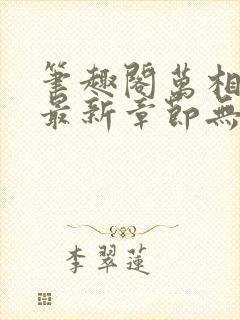 筆趣閣萬相
最新章節無
李翠蓮